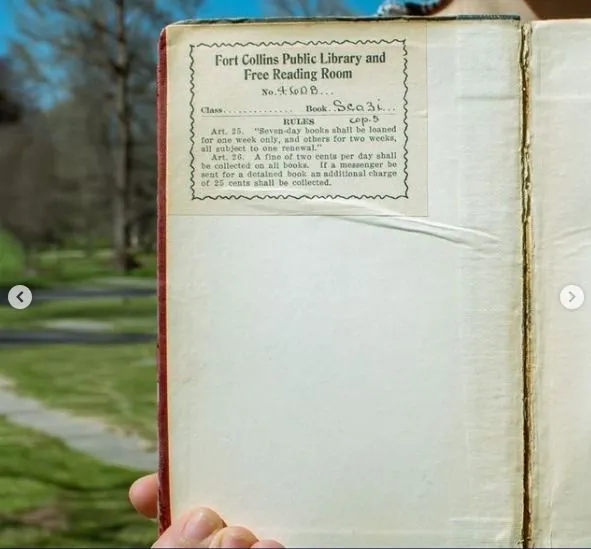 Fort Collins Public Library and
Free Reading Room
No. 4600B...
Class................ Book. Sca3i...
cop. 5
RULES
Art. 25. "Seven-day books shall be loaned
for one week only, and others for two weeks,
all subject to one renewal."
Art. 26. A fine of two cents per day shall
be collected on all books. If a messenger be
sent for a detained book an additional charge
of 25 cents shall be collected.